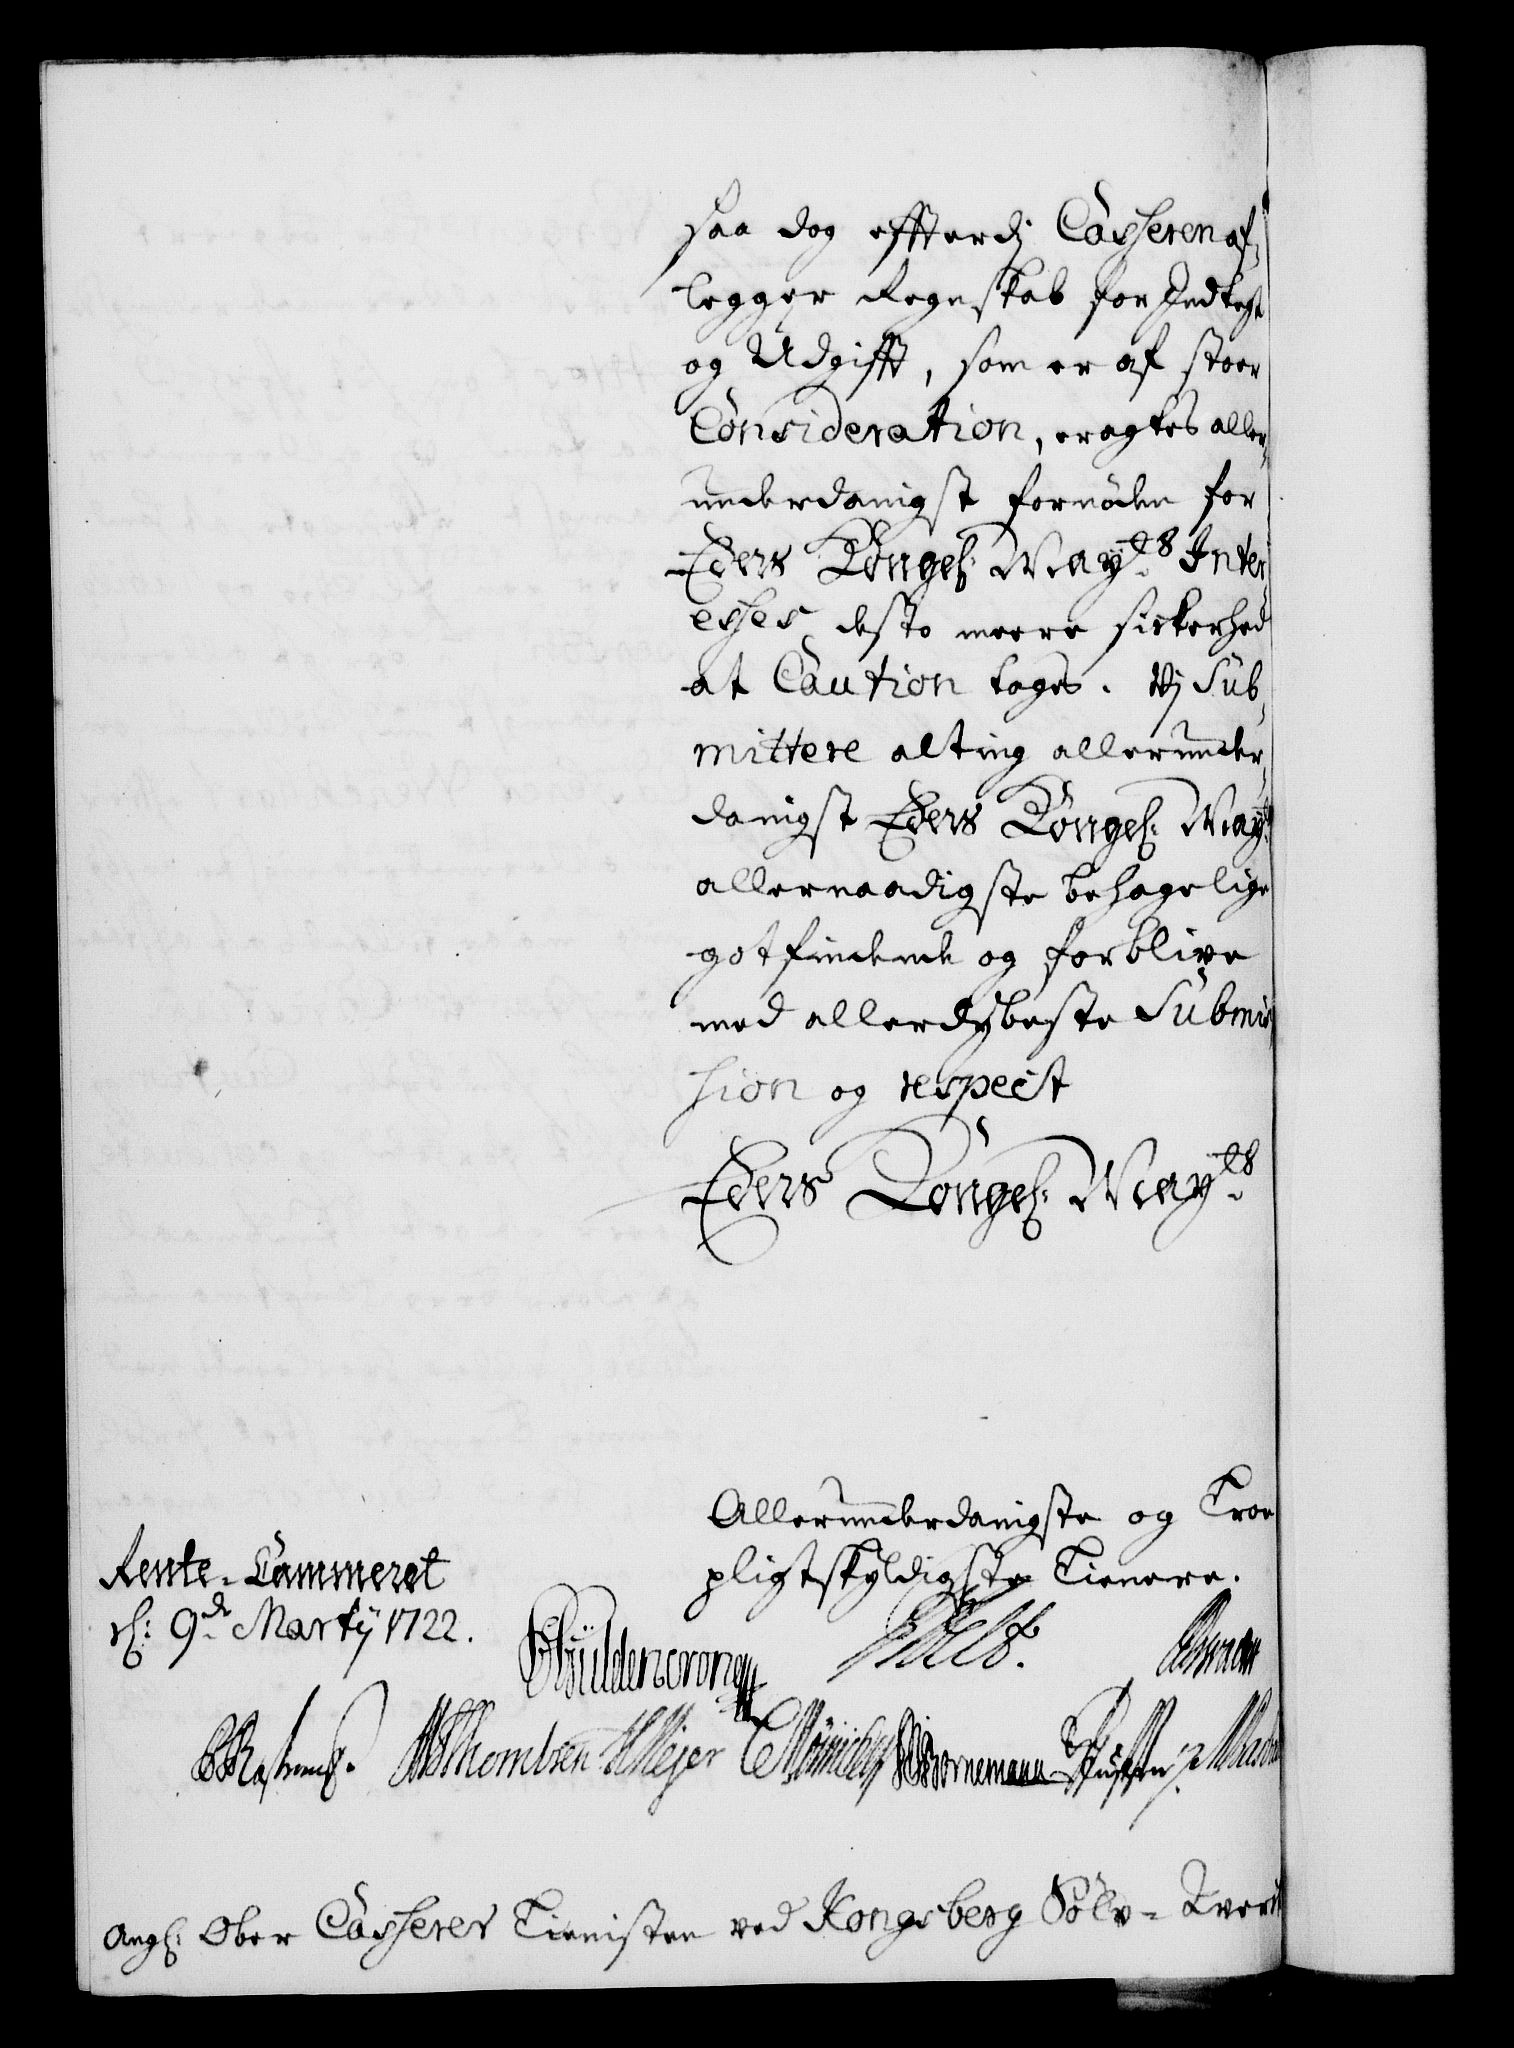 saa dog effterdj Casseren af-
legger Regnskab for Indtegt
og Udgifft, som er af stoer
Consideration, eragtes aller-
underdanigst fornöden for
Eders Kongel: May.ts Inter-
esses desto meere sickerhed
at Caution tages. Vj Sub-
mittere alting allerunder-
danigst Eders Kongel: May.ts
allernaadigste behagelige
gotfindende og forblive
med allerdybeste Submis-
sion og respect
Eders Kongel: May.ts
Allerunderdanigste og Troe
pligtskyldigste Tienere.
Rente-Cammeret
d: 9.de Martij 1722.
Güldencrone
Thombsen HMejer Bornemann
Angl: Ober Casserer Tienisten ved Kongsberg Sölv-Werck